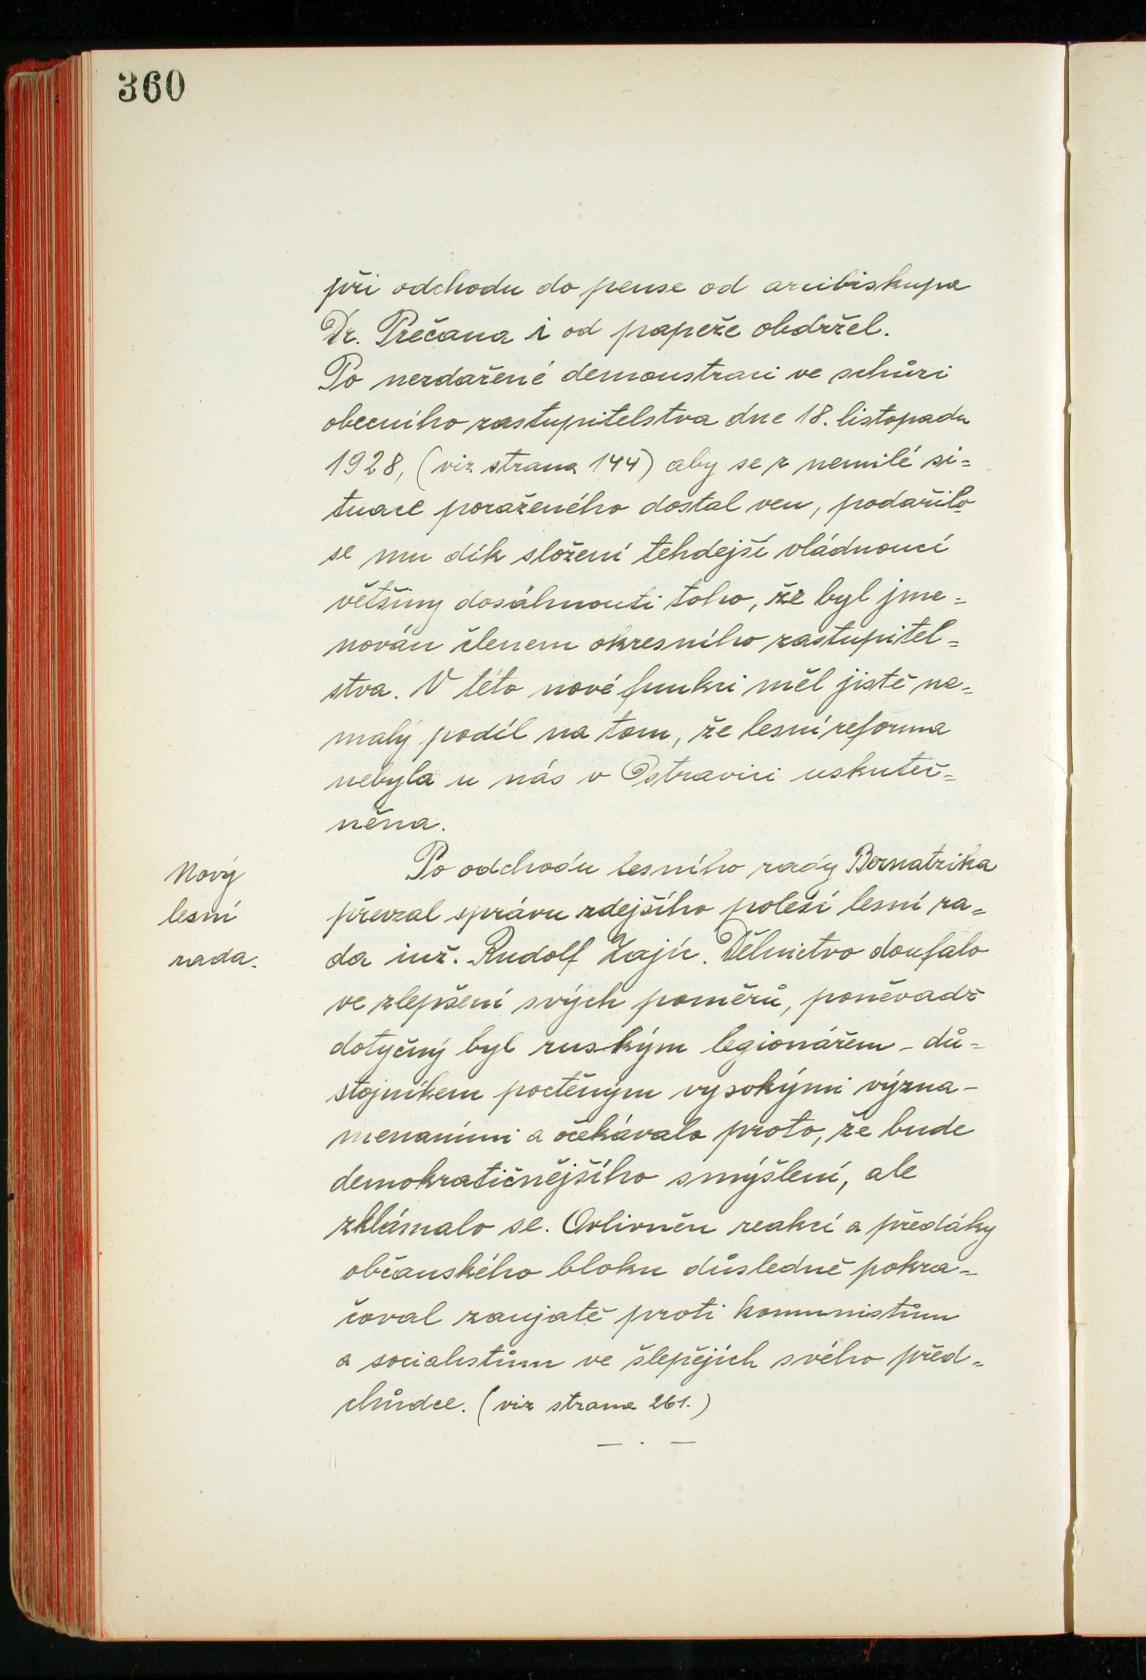 360
při odchodu do pense od arcibiskupa
Dr. Prečana i od papeže obdržel.
Po nezdařené demonstraci ve schůzi
obecního zastupitelstva dne 18. listopadu
1928, (viz strana 144) aby se z nemilé si=
tuace poraženého dostal ven, podařilo
se mu dík složení tehdejší vládnoucí
většiny dosáhnouti toho, že byl jme=
nován členem okresního zastupitel=
stva. V této nové funkci měl jistě ne=
malý podíl na tom, že lesní reforma
nebyla u nás v Ostravici uskuteč=
něna.
Nový
lesní
rada.
Po odchodu lesního rady Bernatzika
převzal správu zdejšího polesí lesní ra=
da inž. Rudolf Zajíc. Dělnictvo doufalo
ve zlepšení svých poměrů, poněvadž
dotyčný byl ruským legionářem – dů=
stojníkem poctěným vysokými význa-
menaními a očekávalo proto, že bude
demokratičnějšího smýšlení, ale
zklámalo se. Ovlivněn reakcí a předáky
občanského bloku důsledně pokra=
čoval zaujatě proti komunistům
a socialistům ve šlepějích svého před=
chůdce. (viz strana 261.)
— . —